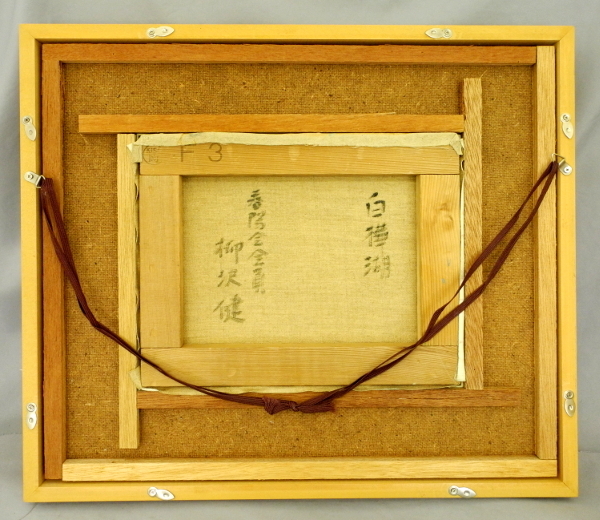 F3
白樺湖
春陽会会員
柳沢健